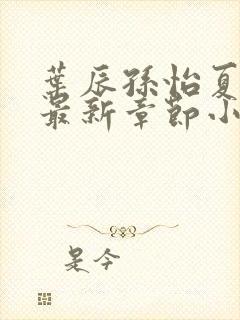 葉辰孫怡夏
最新章節小
是今